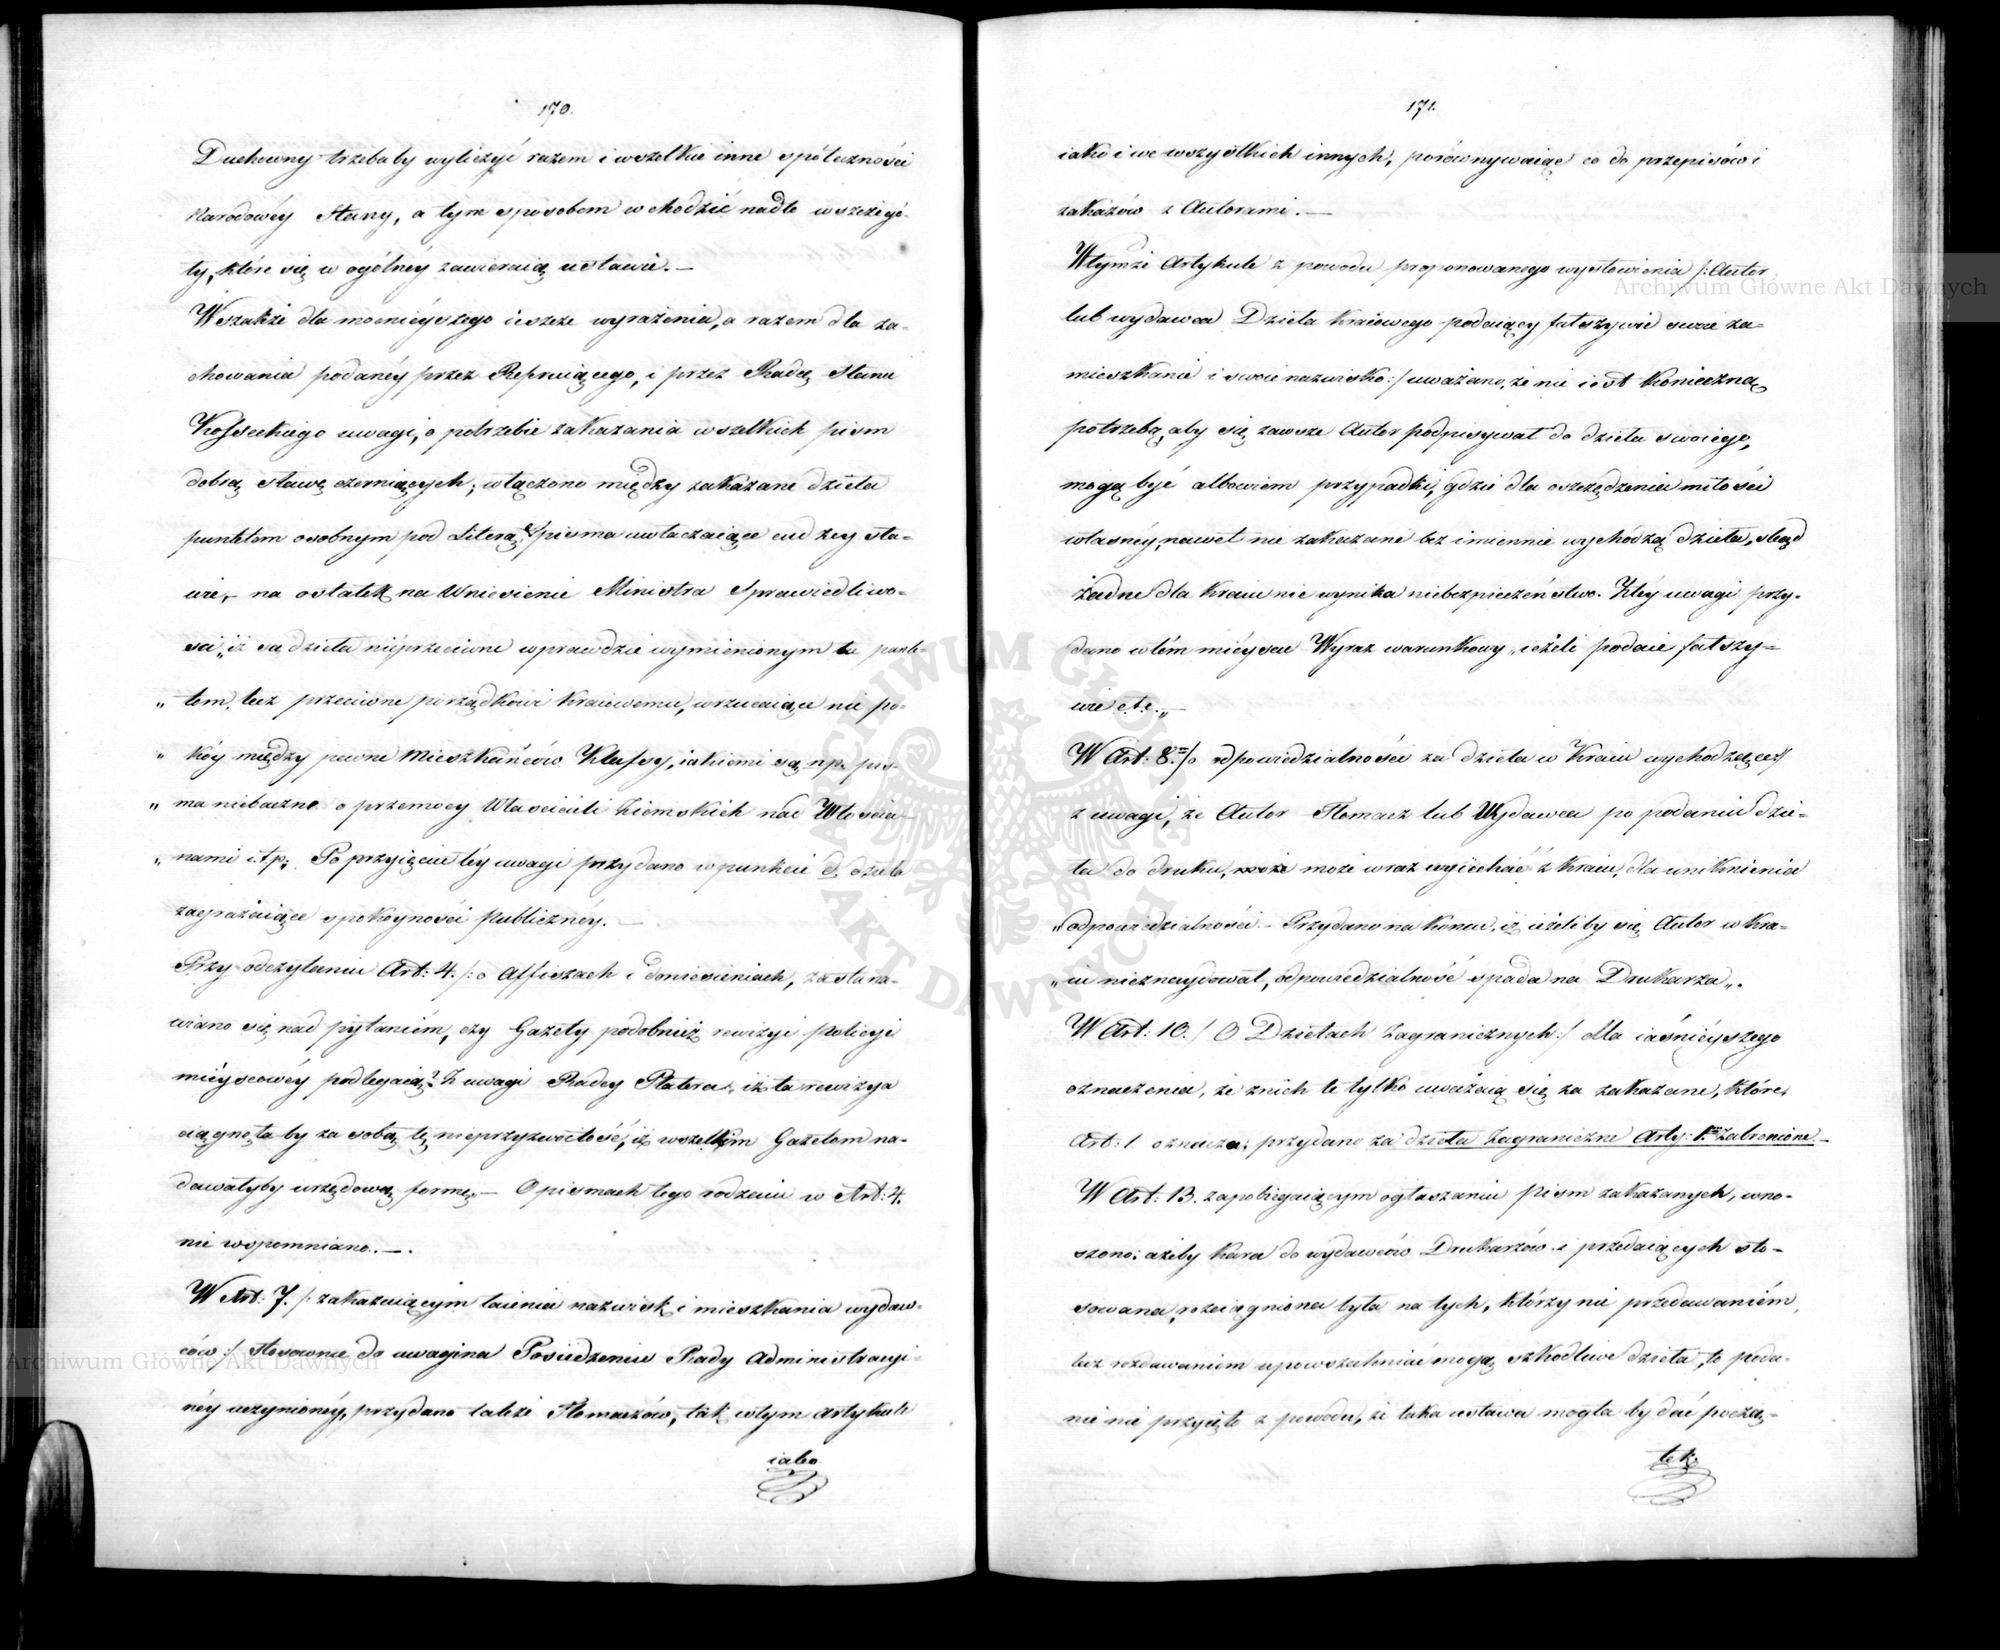 170.
Duchowny trzebaby wyliczyć razem i wszelkie inne spółeczności
Narodowéy Stany, a tym sposobem wchodzić nadto w szczegó-
ły, które się w ogólnéy zawieraią ustawie. —
Wszakże dla mocnieyszego ieszcze wyrażenia, a razem dla za-
chowania podanéy przez Referuiącego, i przez Radcę Stanu
Kosseckiego uwagi, o potrzebie zakazania wszelkich pism
dobrą sławę czerniących; włączono między zakazane dzieła
punktem osobnym pod Literą pisma uwłaczaiące cudzey sła-
wie, — na ostatek na Wniesienie Ministra Sprawiedliwo-
ści „iż są dzieła nieprzeciwne wprawdzie wymienionym tu punk-
„ tom, lecz przeciwne porządkowi kraiowemu, wrzucaiące nie po-
„ kóy między pewne Mieszkańców Klassy, iakiemi są np. pis-
„ ma niebaczne o przemocy Właścicieli Ziemskich nad Włościa-
„ nami i.t.p; Po przyięciu téy uwagi przydano w punkcie d. dzieła
zagrażaiące spokoyności publicznéy. —
Przy odczytaniu Art: 4. /: o Affiszach i doniesieniach, zastana-
wiano się nad pytaniem, czy Gazety podobnież rewizyi Policyi
mieyscowéy podlegaią? Z uwagi Radcy Platera, iż ta rewizya
ciągnęłaby za sobą tę nieprzyzwoitość, iż wszelkim Gazetom na-
dawałyby urzędową formę. — O pismach tego rodzaiu w Art: 4.
nie wspomniano. —.
W Art: 7. /: zakazuiącym taienia nazwisk i mieszkania wydaw-
ców :/ Stosownie do uwagi na Posiedzeniu Rady Administracyi-
néy uczynionéy, przydano także Tłomaczów, tak w tym Artykule
iako
171.
iako i we wszystkich innych, porównywaiąc co do przepisów i
zakazów z Autorami. —
W tymże Artykule z powodu proponowanego wysłowienia /: Autor
lub wydawca Dzieła kraiowego podaiący fałszywie swoie za-
mieszkanie i swoie nazwisko :/ uważano, że nie iest konieczną
potrzebą, aby się zawsze Autor podpisywał do dzieła swoiego,
mogą być albowiem przypadki, gdzie dla oszczędzenia miłości
własnéy, nawet nie zakazane bezimiennie wychodzą dzieła, stąd
żadne dla Kraiu nie wynika niebezpieczeństwo. Z téy uwagi przy-
dano w tém mieyscu Wyraz warunkowy „ieżeli podaie fałszy-
wie etc.„ —
W Art: 8. /: o odpowiedzialności za dzieła w Kraiu wychodzące :/
z uwagi, że Autor Tłomacz lub Wydawca po podaniu dzie-
ła do druku, może wraz wyiechać z Kraiu, dla uniknienia
odpowiedzialności. — Przydano na końcu, „iż ieżeliby się Autor w Kra-
„iu nieznaydował, odpowiedzialność spada na Drukarza„.
W Art: 10. /: O Dziełach Zagranicznych :/ dla iaśniéyszego
oznaczenia, że z nich te tylko uważaią się za zakazane, które
Art: 1. oznacza; przydano za dzieła Zagraniczne Arty: 1m zabronione. —
W Art: 13. zapobiegaiącym ogłaszaniu pism zakazanych, wno-
szono; ażeby kara do wydawców Drukarzów i przedaiących sto-
sowana, rozciągniona była na tych, którzy nie przedawaniém,
lecz rozdawaniem upowszechniać mogą szkodliwe dzieła, to poda-
nie nie przyięto z powodu, że taka ustawa mogłaby dać począ-
tek